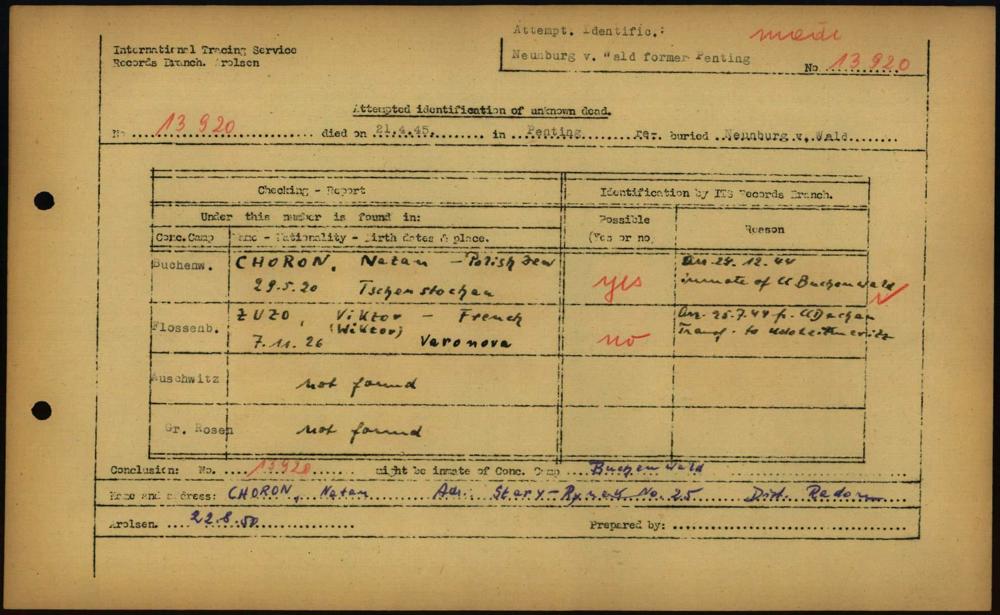 Attempt. Identific.: made
International Tracing Service
Records Branch. Arolsen
Neunburg v. Wald former Penting
No 13 920
Attempted identification of unknown dead.
No 13 920 died on 21.4.45. in Penting rer. buried Neunburg v. Wald
Checking - Report
Identification by ITS Records Branch.
Under this number is found in:
Possible (Yes or no)
Reason
Conc.Camp
Name - Nationality - Birth dates & place.
Buchenw. CHORON, Natan - Polish Jew yes Arr. 24.12.44
29.5.20 Tschenstochau inmate of CC Buchenwald
Flossenb. ZUZO, Viktor - French no Arr. 25.7.44 f. CC Dachau
(Wiktor) Transf. to
7.11.26 Varonova
Auschwitz not found
Gr. Rosen not found
Conclusion: No. 13920 might be inmate of Conc. Camp Buchenwald
Name and address: CHORON, Natan Adr. Stary-Rynek No. 25 Dist. Radom
Arolsen. 22.8.50 Prepared by: